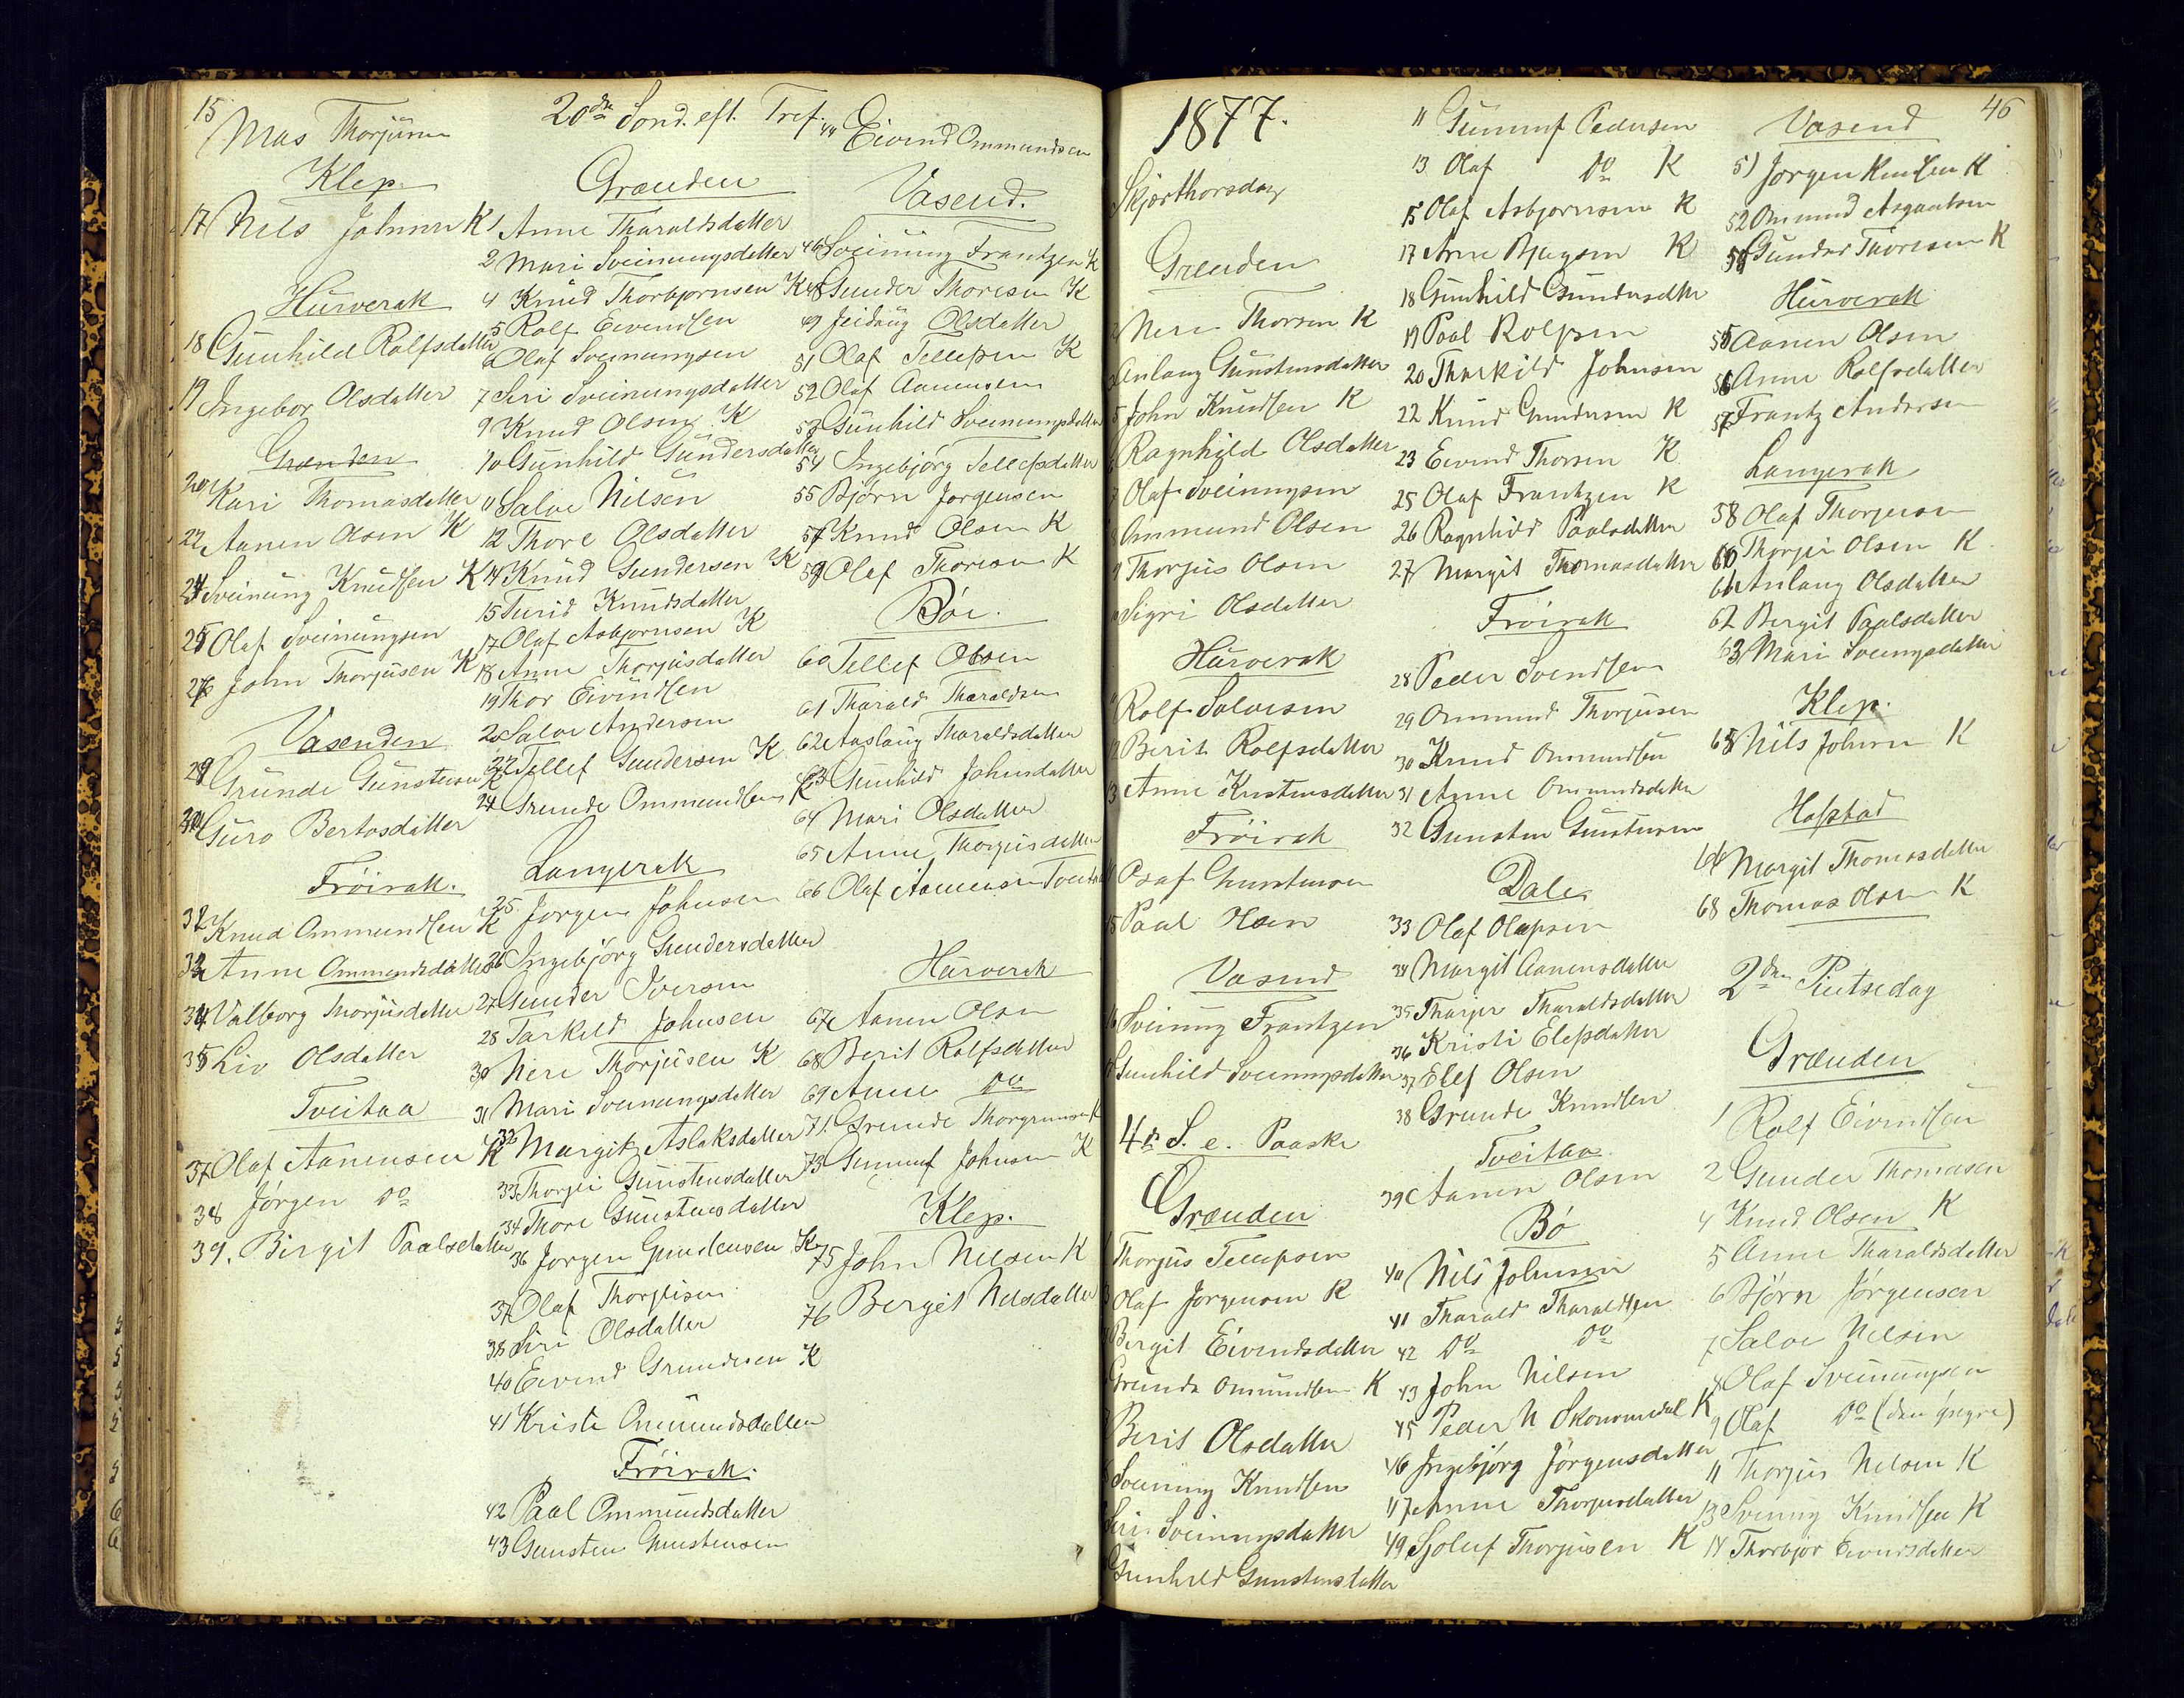 15
Mas Thorjusen
Klep
17 Nels Johnsen K
Hurverak
18 Gunhild Rolfsdatter
19 Ingebor Olsdatter
Grænden
20 Kari Thomasdatter
22 Aanen Olsen K
24 Sveinung Knudsen K
25 Olaf Sveinungsen
26 John Thorjusen K
Vasenden
29 Grunde Gunstensen K
Guro Bertosdatter
Fröirak.
32 Knud Ommundsen K
Anne Ommundsdatter
34 Valborg Thorjusdatter
35 Liv Olsdatter
Tveitaa
37 Olaf Aanensen K
38 Jörgen do
39. Birgit Paalsdatter
20de Sönd. eft. Tref.
Grænden
1 Anne Tharaldsdatter
2 Mari Sveinungsdatter
4 Knud Thorbjornsen K
5 Rolf Eivendsen
6 Olaf Sveinungsen
7 Siri Sveinungsdatter
9 Knud Olsen K
10 Gunhild Gundersdatter
11 Salve Nilsen
12 Thore Olsdatter
14 Knud Gundersen K
15 Turid Knudsdatter
17 Olaf Asbjornsen K
18 Anne Thorjusdatter
19 Thor Eivindsen
20 Salve Andersen
22 Tellef Gundersen K
24 Grunde Ommundsen K
Langerak
25 Jorgen Johnsen
26 Ingebjörg Gundersdatter
27 Gunder Iversen
28 Tarkild Johnsen
30 Neri Thorjusen K
31 Mari Sveinungsdatter
32 Margit Aslaksdatter
33 Thorjei Gunstensdatter
34 Thore Gunstensdatter
36 Jorgen Gundersen K
37 Olaf Thorjusen
38 Siri Olsdatter
40 Eivind Grundesen K
41 Kristi Ommundsdatter
Fröirak.
42 Paal Ommundsdatter
43 Gunsten Gunstensen
44 Eivind Ommundsen
Vasend.
46 Sveinung Frantzen K
48 Gunder Thoresen K
49 Jeidaug Olsdatter
51 Olaf Tellefsen K
52 Olaf Aanensen
53 Gunhild Sveinungsdatter
54 Ingebjörg Tellefsdatter
55 Björn Jorgensen
57 Knud Olsen K
59 Olaf Thoresen K
Böe.
60 Tellef Olsen
61 Tharald Tharaldsen
62 Aaslaug Tharaldsdatter
63 Gunhild Johnsdatter
64 Mari Olsdatter
65 Anne Thorjusdatter
66 Olaf Aanensen Tveita
Hurverak
67 Aanen Olsen
68 Berit Rolfsdatter
69 Anne do
71. Grunde Thorgrimsen K
73 Gunnuf Johnsen K
Klep.
75 John Nilsen K
76 Bergit Nilsdatter
1877.
Skjærthorsdag
Grænden
Neri Thorsen K
Anlaug Gunstensdatter
5 John Knudsen K
Ragnhild Olsdatter
7 Olaf Sveinungsen
8 Ommund Olsen
9 Thorjus Olsen
Sigri Olsdatter
Hurverak
Rolf Salvesen
12 Berit Rolfsdatter
13 Anne Kristensdatter
Fröirak
Olaf Gunstensen
15 Paal Olsen
Vasend
Sveinung Frantzen
Gunhild Sveinungsdatter
4de S. e. Paaske
Grænden
Thorjus Tellefsen
3 Olaf Jorgensen K
Birgit Eivendsdatter
Grunde Omundsen K
Berit Olsdatter
Sveinung Knudsen
Siri Sveinungsdatter
Gunhild Gunstensdatter
11 Gunnuf Pedersen
13. Olaf do K
15 Olaf Asbjornsen K
17 Arne Bjugsen K
18 Gunhild Gundersdatter
19 Paal Rolfsen
20 Thorkild Johnsen
22 Knud Gundersen K
23 Eivind Thorsen K
25 Olaf Frantzen K
26 Ragnhild Paalsdatter
27 Margit Thomasdatter
Fröirak
28 Peder Svendsen
29 Ommund Thorjusen
30 Knud Ommundsen
31 Anne Ommundsdatter
32 Gunsten Gunstensen
Dale
33 Olaf Olafsen
34 Margit Aanensdatter
35 Tharjer Tharaldsdatter
36 Kristi Elefsdatter
37 Elef Olsen
38 Grunde Knudsen
Tveitaa
39 Aanen Olsen
Bö
40 Nils Johnsen
41 Tharald Tharaldsen
42 do do
43 John Nilsen
45 Peder N Skomedal K
46 Ingebjörg Jörgensdatter
47 Anne Thorjusdatter
49 Sjoluf Thorjusen K
46
Vasend
51 Jorgen Knudsen K
52 Ommund Asgautsen
54 Gunder Thoresen K
Hurverak
55 Aanen Olsen
56 Anne Rolfsdatter
57 Frantz Andersen
Langerak
58 Olaf Thorjusen
60 Thorjei Olsen K
61 Anlaug Olsdatter
62 Bergit Paalsdatter
63 Mari Sveingsdatter
Klep.
65 Nils Johnsen K
Hofstad
66 Margit Thomasdatter
68 Thomas Olsen K
2den Pintsedag
Grænden
1 Rolf Eivindsen
2 Gunder Thomasen
4 Knud Olsen K
5 Anne Tharaldsdatter
6 Björn Jörgensen
7 Salve Nelsen
8 Olaf Sveinungsen
9 Olaf do (den yngre)
11 Thorjus Nelsen K
13 Sveinung Knudsen K
14 Thorbjör Eivindsdatter